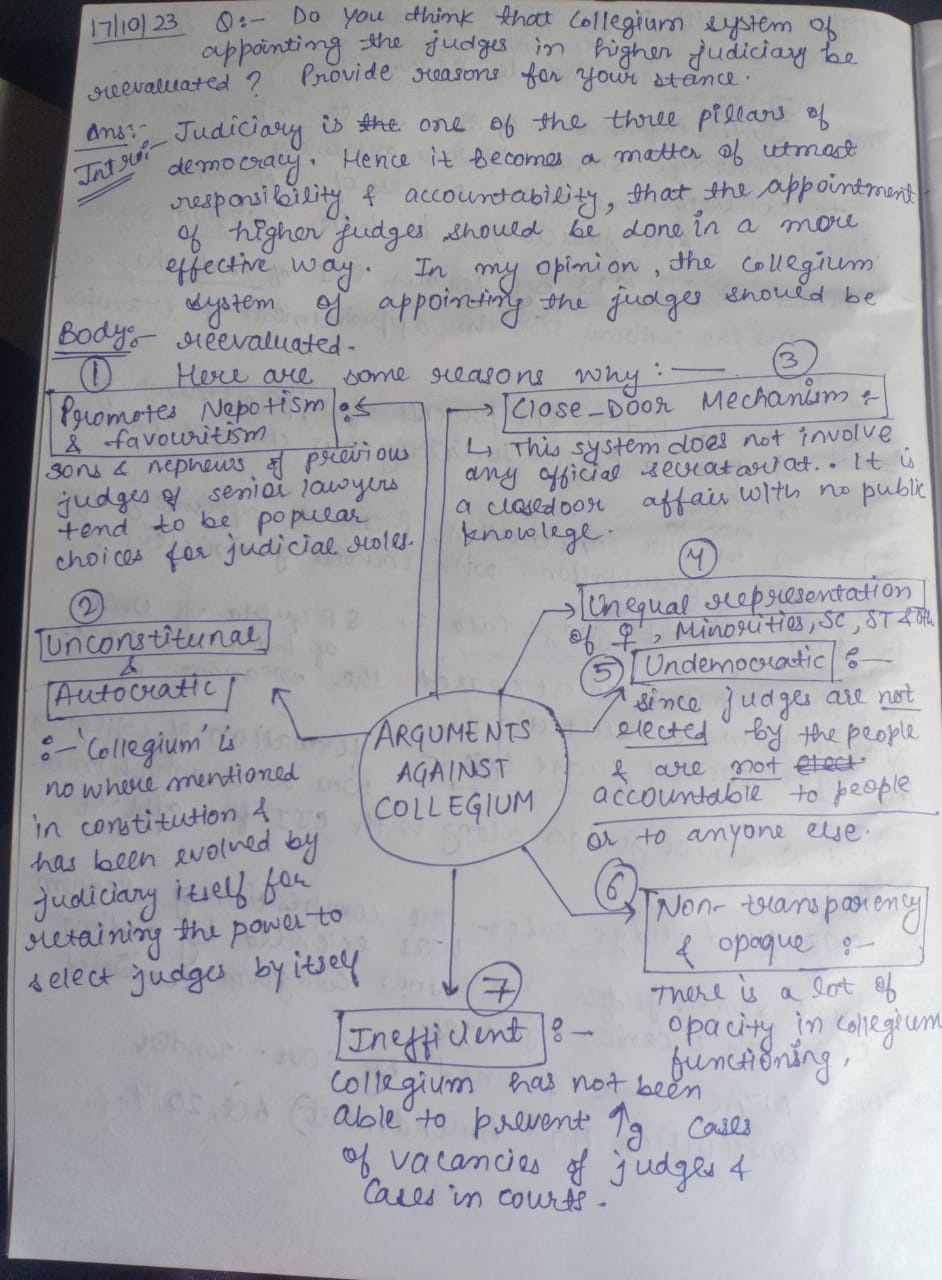 17/10/23 Q:- Do you think that collegium system of
appointing the judges in higher judiciary be
reevaluated? Provide reasons for your stance.
Ans:- Judiciary is the one of the three pillars of
Intro:- democracy. Hence it becomes a matter of utmost
responsibility & accountability, that the appointment
of higher judges should be done in a more
effective way. In my opinion, the collegium
system of appointing the judges should be
Body:- reevaluated.
Here are some reasons why:—
①
Promotes Nepotism
& favouritism :-
sons & nephews of previous
judges of senior lawyers
tend to be popular
choices for judicial roles.
②
Unconstitunal
&
Autocratic
:- 'Collegium' is
no where mentioned
in constitution &
has been evolved by
judiciary itself for
retaining the power to
select judges by itself
③
Close-Door Mechanism :-
↳ This system does not involve
any official secratariat.. It is
a closedoor affair with no public
knowlege.
④
Unequal representation
of ♀, Minorities, SC, ST &
⑤ Undemocratic :-
since judges are not
elected by the people
& are not elect
accountable to people
or to anyone else.
ARGUMENTS
AGAINST
COLLEGIUM
⑥
Non-transparency
& opaque :-
There is a lot of
opacity in collegium
functioning.
⑦
Inefficient :-
collegium has not been
able to prevent ↑g cases
of vacancies of judges &
cases in courts.